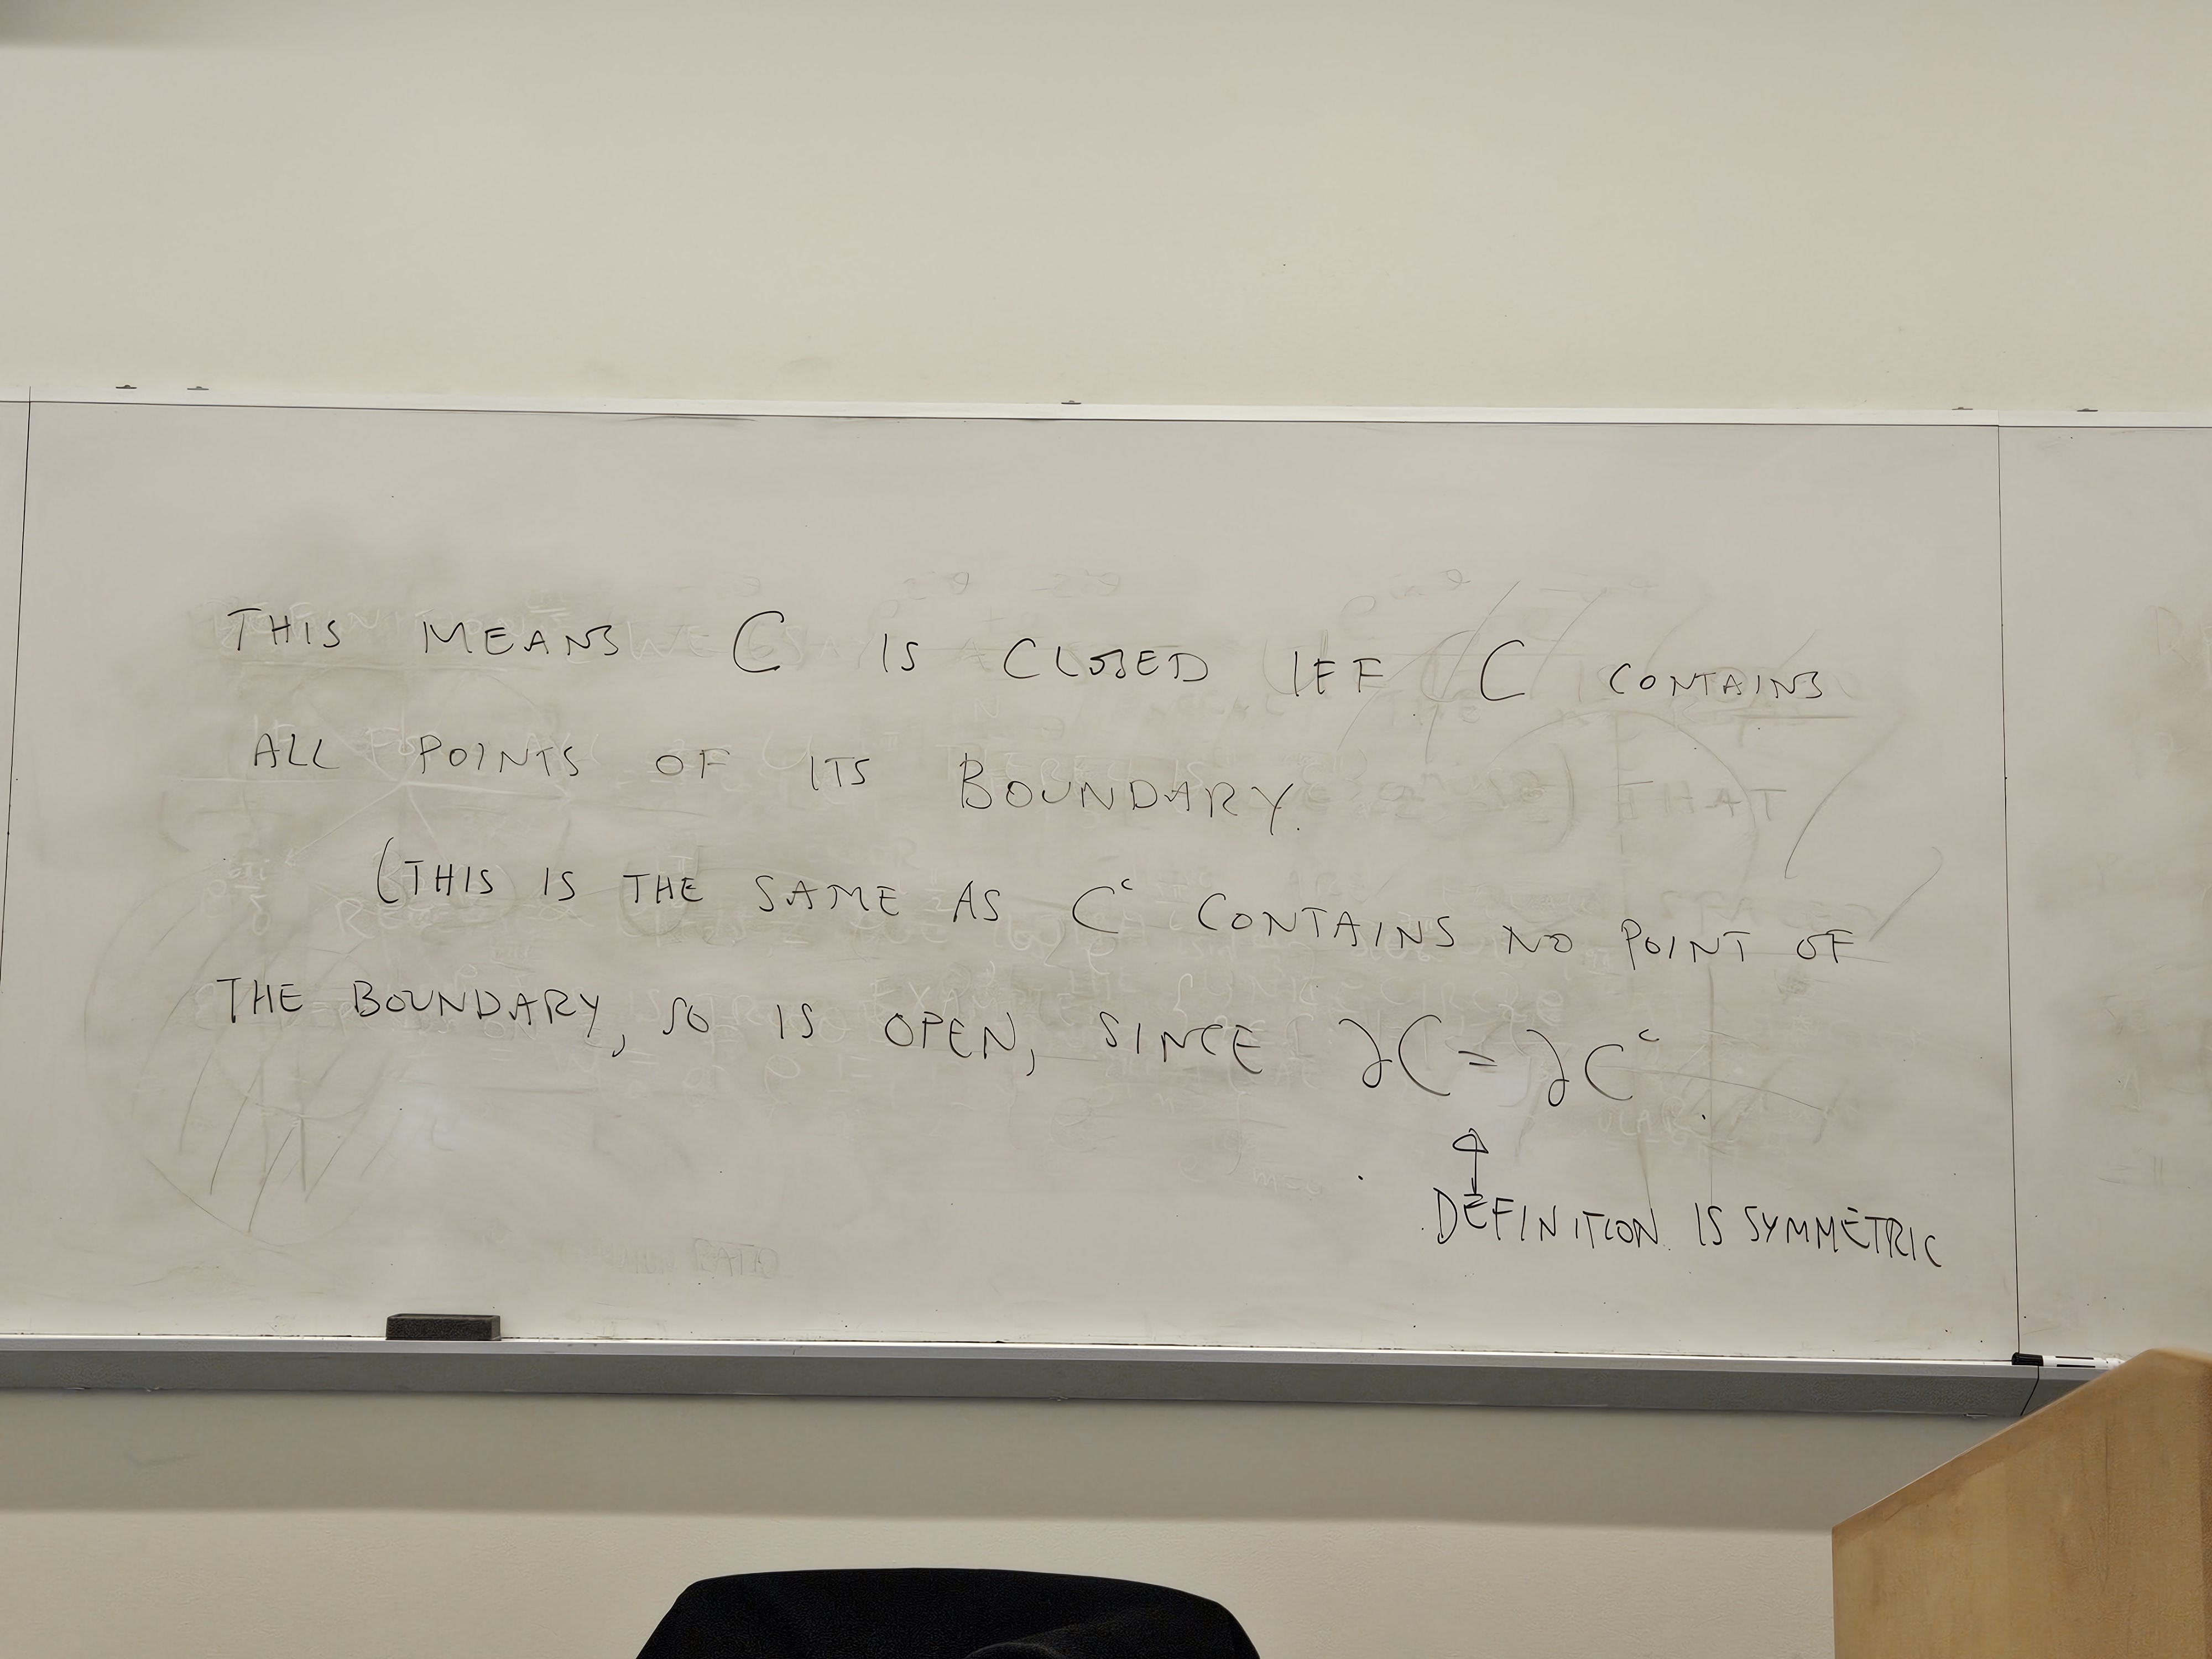 THIS MEANS C IS CLOSED IFF C CONTAINS
ALL POINTS OF ITS BOUNDARY.
(THIS IS THE SAME AS Cᶜ CONTAINS NO POINT OF
THE BOUNDARY, SO IS OPEN, SINCE ∂C = ∂Cᶜ.
DEFINITION IS SYMMETRIC